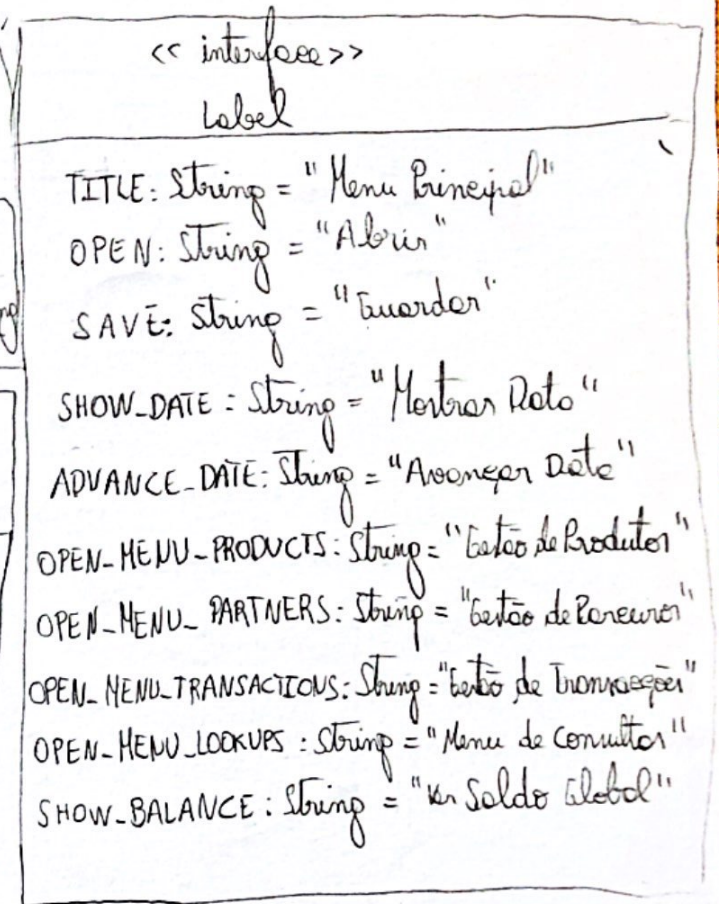 << interface >>
Label
TITLE: String = "Menu Principal"
OPEN: String = "Abrir"
SAVE: String = "Guardar"
SHOW_DATE: String = "Mostrar Data"
ADVANCE_DATE: String = "Avançar Data"
OPEN_MENU_PRODUCTS: String = "Gestão de Produtos"
OPEN_MENU_PARTNERS: String = "Gestão de Parceiros"
OPEN_MENU_TRANSACTIONS: String = "Gestão de Transacções"
OPEN_MENU_LOOKUPS: String = "Menu de Consultas"
SHOW_BALANCE: String = "Ver Saldo Global"